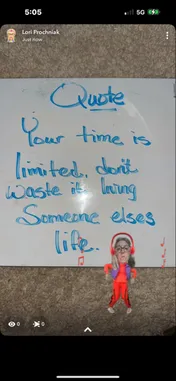 5:05
5G
Lori Prochniak
Just now
Quote
Your time is
limited, don't
waste it living
Someone elses
life.
0
0